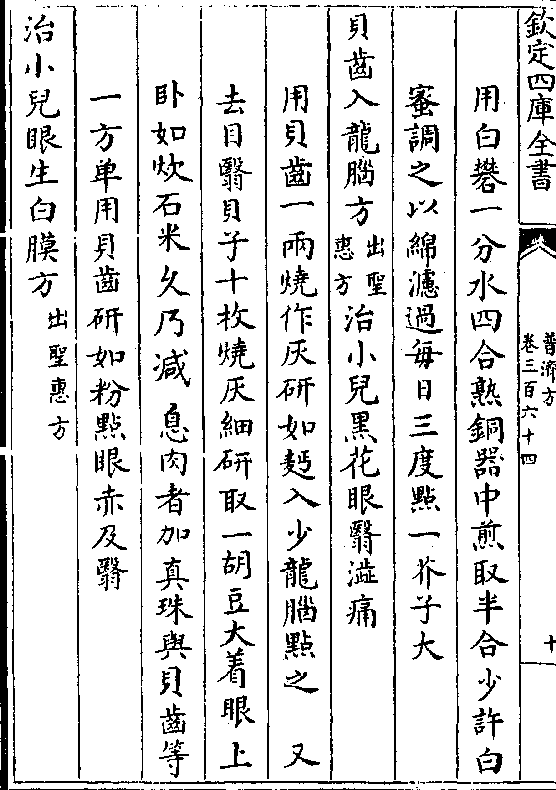 欽定四庫全書
普濟方
卷三百六十四
十
用白礬一分水四合熟銅器中煎取半合少許白
蜜調之以綿濾過每日三度點一芥子大
貝齒入龍腦方出聖惠方治小兒黑花眼翳澁痛
用貝齒一兩燒作灰研如麪入少龍腦點之 又
去目翳貝子十枚燒灰細研取一胡豆大着眼上
卧如炊石米久乃减 息肉者加真珠與貝齒等
一方单用貝齒研如粉點眼赤及翳
治小兒眼生白膜方出聖惠方